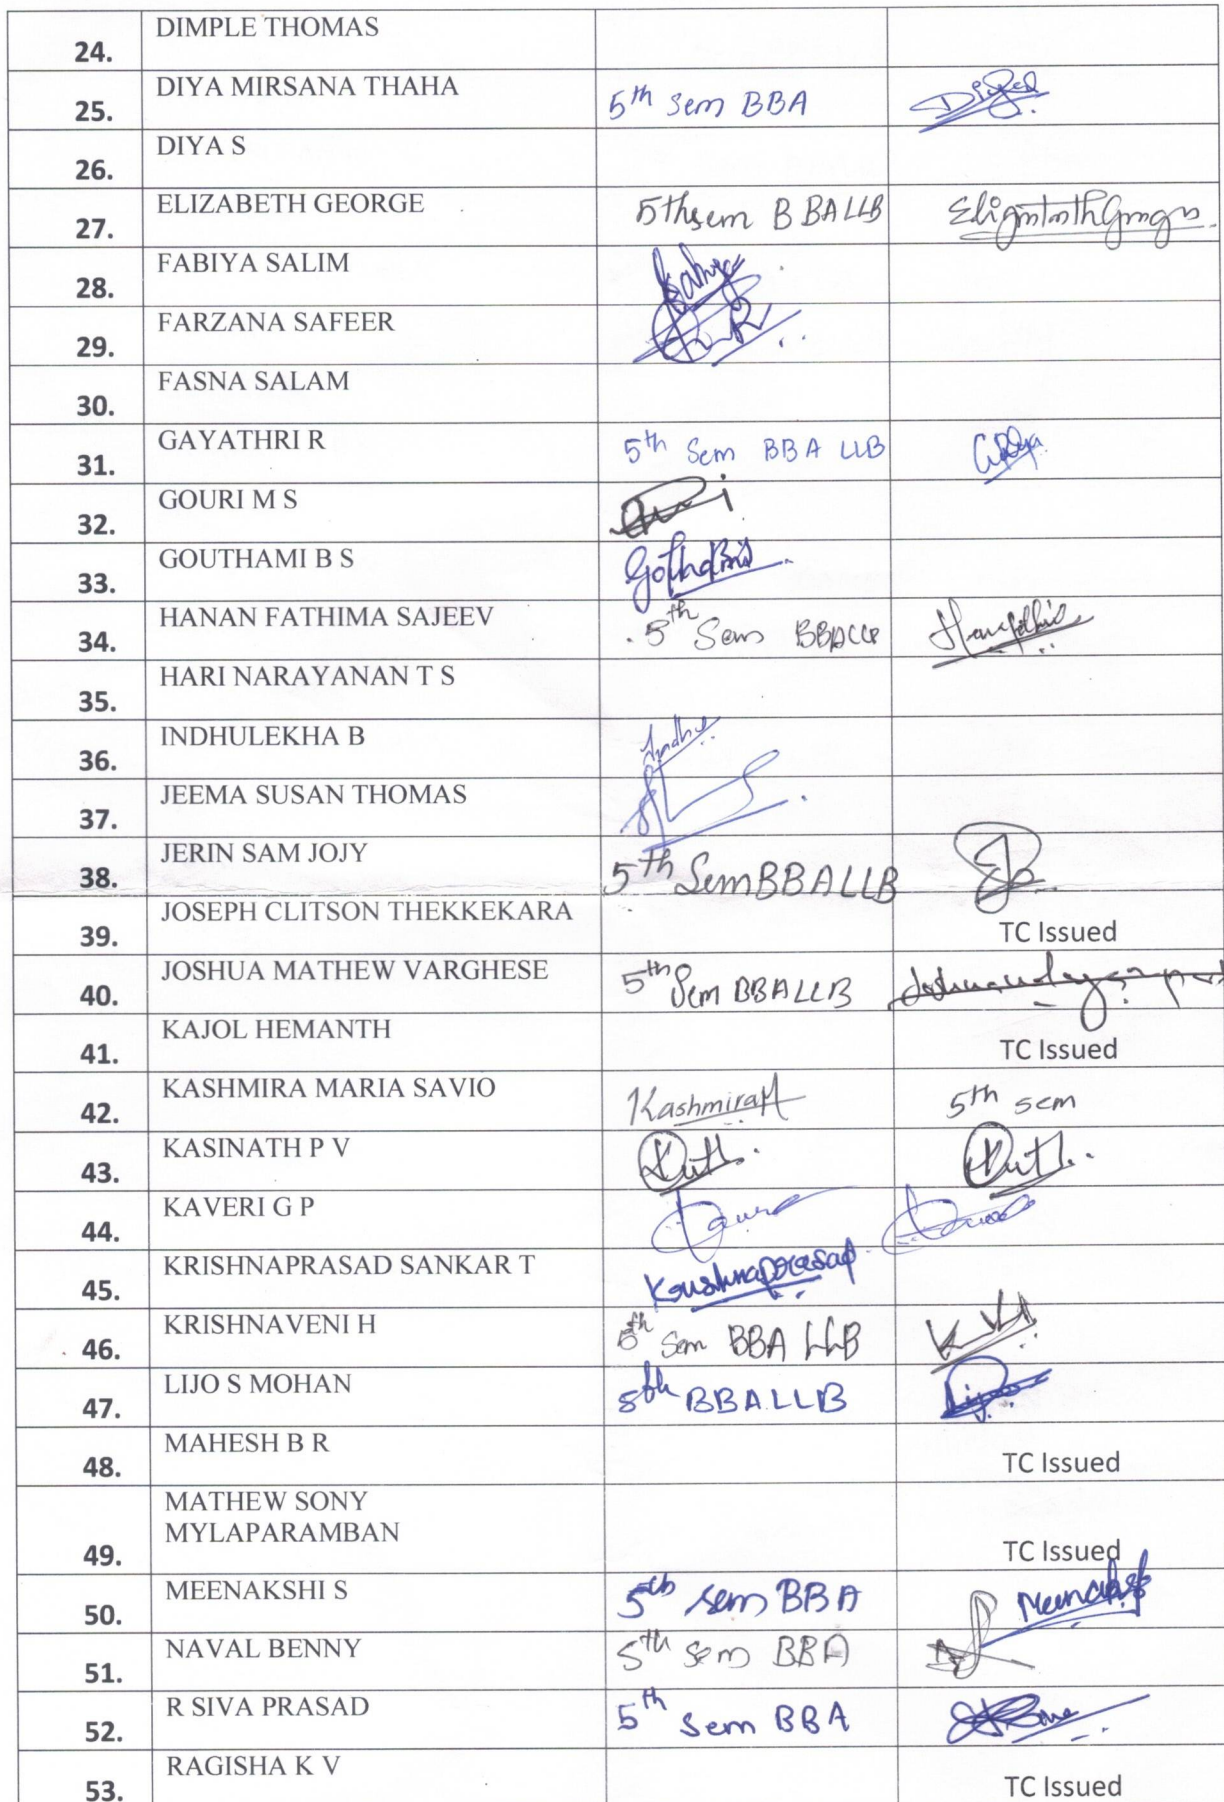 24. DIMPLE THOMAS
25. DIYA MIRSANA THAHA 5th Sem BBA
26. DIYA S
27. ELIZABETH GEORGE 5th sem BBA LLB
28. FABIYA SALIM
29. FARZANA SAFEER
30. FASNA SALAM
31. GAYATHRI R 5th Sem BBA LLB
32. GOURI M S
33. GOUTHAMI B S
34. HANAN FATHIMA SAJEEV 5th Sem
35. HARI NARAYANAN T S
36. INDHULEKHA B
37. JEEMA SUSAN THOMAS
38. JERIN SAM JOJY 5th Sem BBA LLB
39. JOSEPH CLITSON THEKKEKARA TC Issued
40. JOSHUA MATHEW VARGHESE 5th Sem BBA LLB
41. KAJOL HEMANTH TC Issued
42. KASHMIRA MARIA SAVIO KashmiraM 5th sem
43. KASINATH P V
44. KAVERI G P
45. KRISHNAPRASAD SANKAR T
46. KRISHNAVENI H 5th Sem BBA LLB
47. LIJO S MOHAN 5th BBA LLB
48. MAHESH B R TC Issued
MATHEW SONY
49. MYLAPARAMBAN TC Issued
50. MEENAKSHI S 5th sem BBA
51. NAVAL BENNY 5th sem BBA
52. R SIVA PRASAD 5th sem BBA
53. RAGISHA K V TC Issued